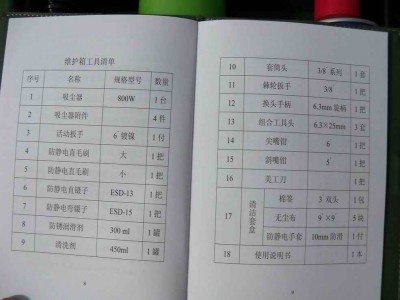 维护箱工具清单
序号 名称 规格型号 数量
1 吸尘器 800W 1台
2 吸尘器附件 4件
3 活动扳手 6"镀镍 1付
4 防静电直毛刷 大 1把
5 防静电直毛刷 小 1把
6 防静电直镊子 ESD-13 1把
7 防静电弯镊子 ESD-15 1把
8 防锈润滑剂 300 ml 1罐
9 清洗剂 450ml 1罐
10 套筒头 3/8"系列 1套
11 棘轮扳手 3/8" 1把
12 换头手柄 6.3mm 旋柄 1把
13 组合工具头 6.3×25mm 3套
14 尖嘴钳 6" 1把
15 斜嘴钳 5" 1把
16 美工刀 1把
17 清洁套盒 棉签 3"双头 1包
无尘布 9"×9" 5块
防静电手套 10mm 防滑 1付
18 使用说明书 1本